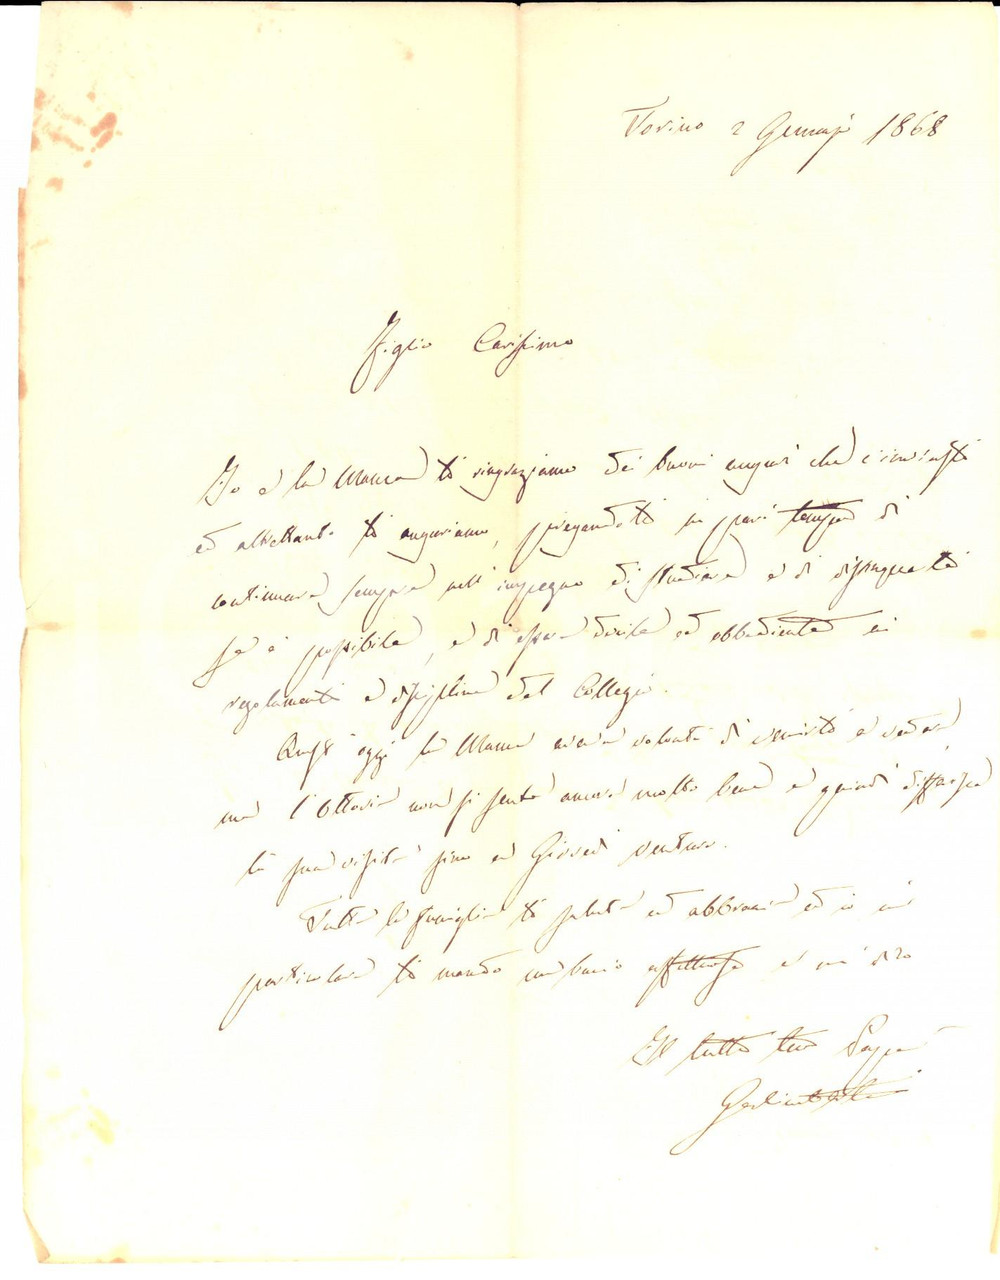 Torino 2 Gennajo 1868
Figlio Carissimo
Io e la Mamma ti ringraziamo dei buoni augurj che c'inviasti
ed altrettanto ti auguriamo, pregandoti in pari tempo di
continuare sempre nell'impegno di studiare e di distinguerti
se è possibile, e di essere docile ed obbediente ai
regolamenti e discipline del Collegio.
Quest'oggi la Mamma aveva volontà di venirti a vedere,
ma l'Ottavia non si sente ancora molto bene e quindi differisce
la sua visita sino a Giovedì venturo.
Tutta la famiglia ti saluta ed abbraccia ed io in
particolare ti mando un bacio affettuoso e mi dico
Il tutto tuo Pappà